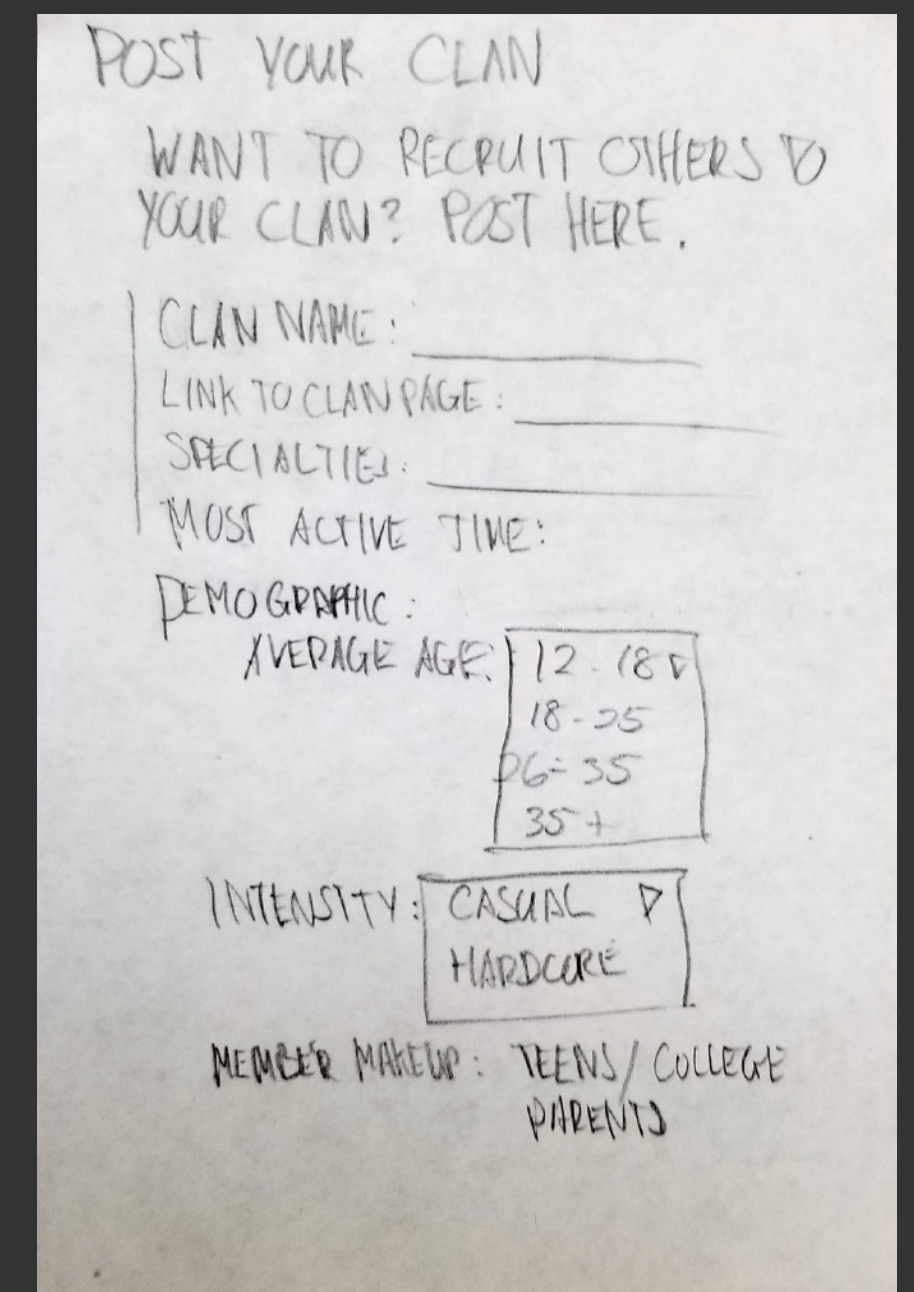 POST YOUR CLAN
WANT TO RECRUIT OTHERS TO
YOUR CLAN? POST HERE.
CLAN NAME:
LINK TO CLAN PAGE:
SPECIALTIES:
MOST ACTIVE TIME:
DEMOGRAPHIC:
AVERAGE AGE: 12-18
18-25
26-35
35+
INTENSITY: CASUAL
HARDCORE
MEMBER MAKEUP: TEENS/COLLEGE
PARENTS